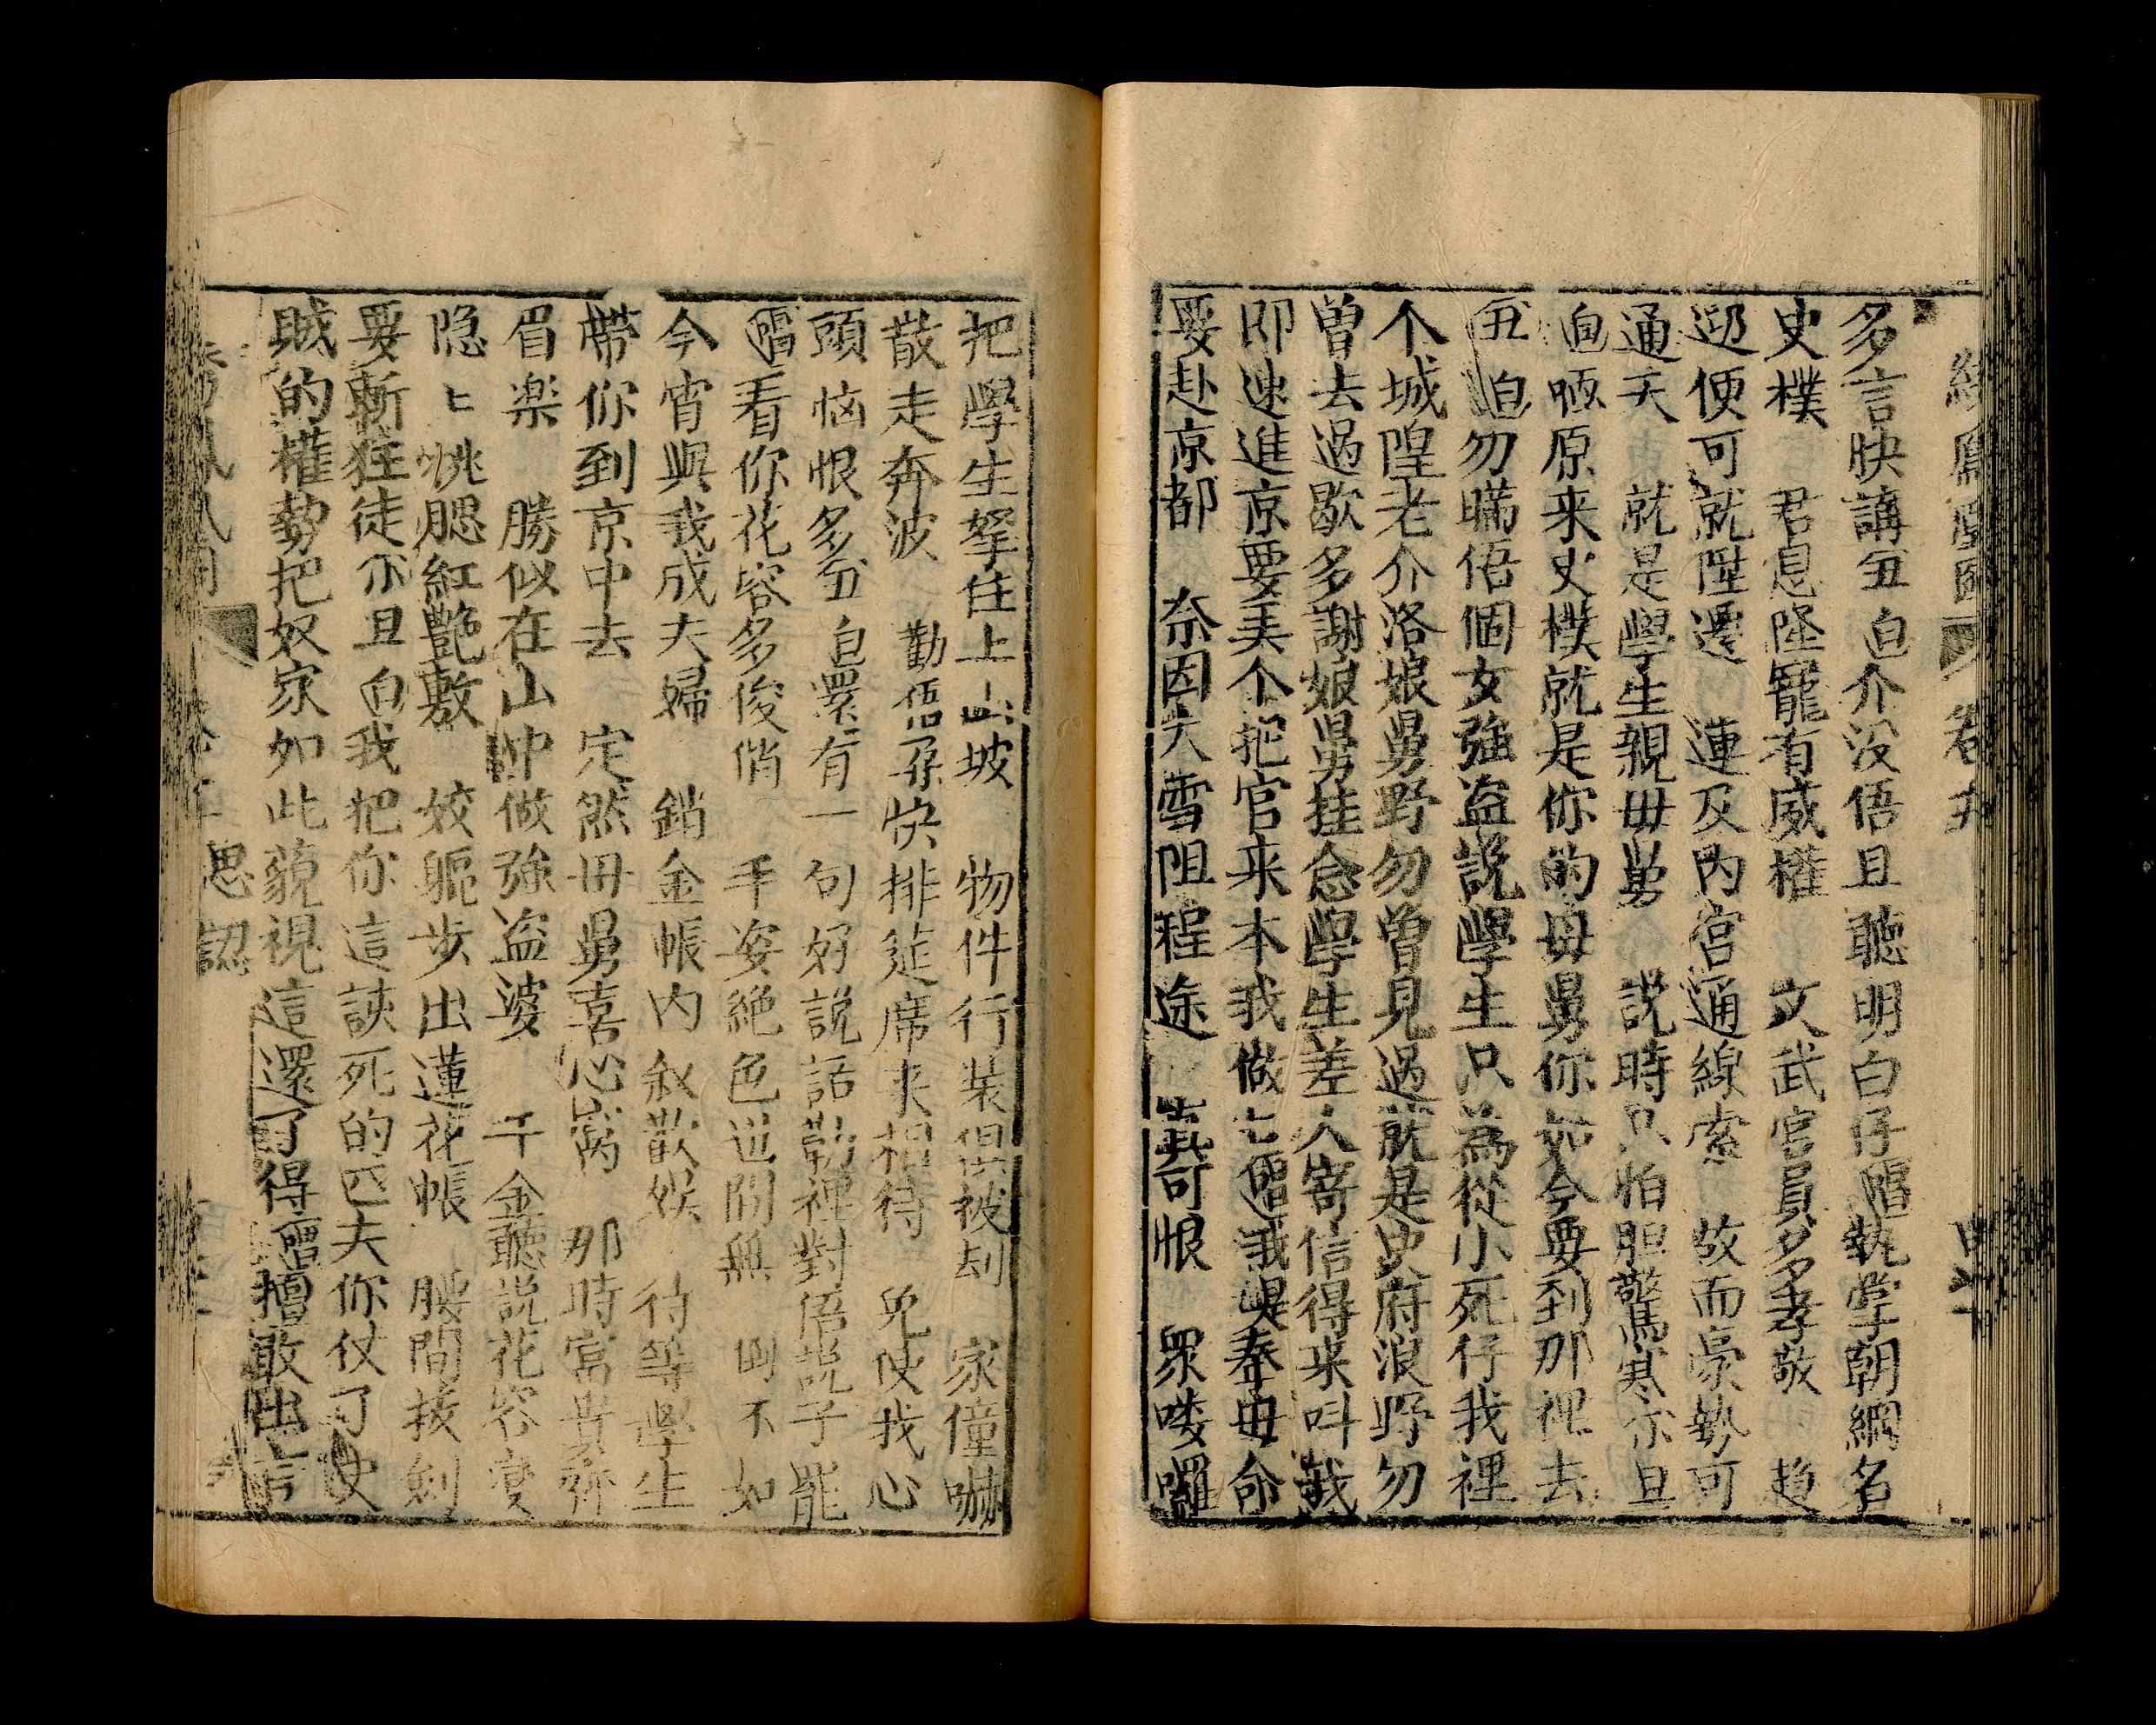 繡鳳凰圖 卷六
多言快講丑白介没俉且聽明白仔唱執掌朝綱名
史樸 君息陞寵有威權 文武官員多孝敬 趋
迎便可就陞遷 連及內宮通線索 故而豪勢可
通天 就是學生親母舅 説時只怕胆驚寒小旦
白唖原来史樸就是你的母舅你如今要到那裡去
丑白勿瞞俉個女強盗説學生只為從小死仔我裡
个城隍老介洛娘舅野勿曾見過就是史府浪野勿
曾去過歇多謝娘舅挂念學生差人寄信得来呌我
即速進京要弄个把官来本我做七唱我是奉母命
要赴京都 奈因大雪阻程途 真可恨 衆喽囉
把學生拏住上山坡 物件行装俱被刦 家僮嚇
散走奔波 勸俉 快排筵席来相待 免使我心
頭惱恨多丑白還有一句好説話勒裡對俉説子罷
唱看你花容多俊俏 丰姿絶色世間無 倒不如
今宵與我成夫婦 銷金帳内叙歡娯 待等學生
帶你到京中去 定然母舅喜心窩 那時富貴齊
眉楽 勝似在山中做強盗婆 千金聽説花容变
隐匕桃腮紅艶敷 姣軀步出蓮花帳 腰間拔剣
要斬狂徒小旦白我把你這該死的匹夫你仗了史
賊的權勢把奴家如此藐視這還了得唱擅敢出言
思認